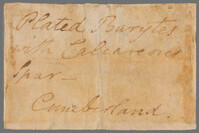 Plated Barytes
with Calcareous
Spar —
Cumberland.